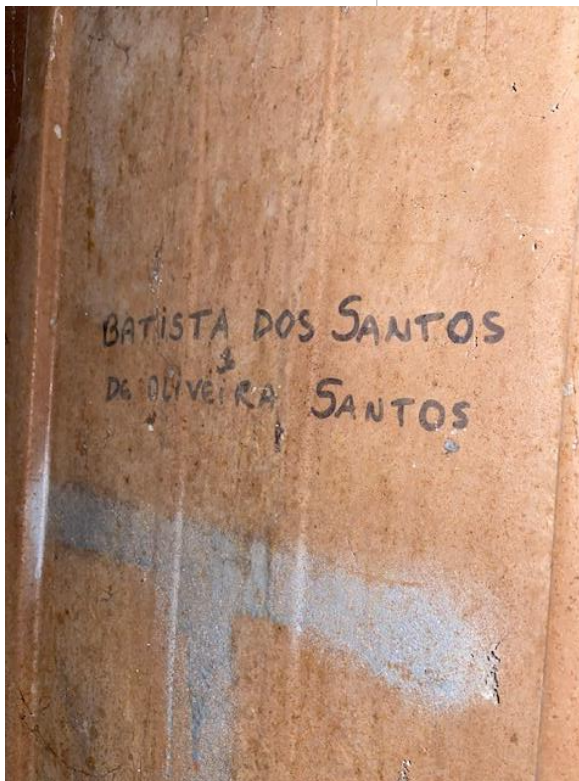 BATISTA DOS SANTOS
DE OLIVEIRA SANTOS